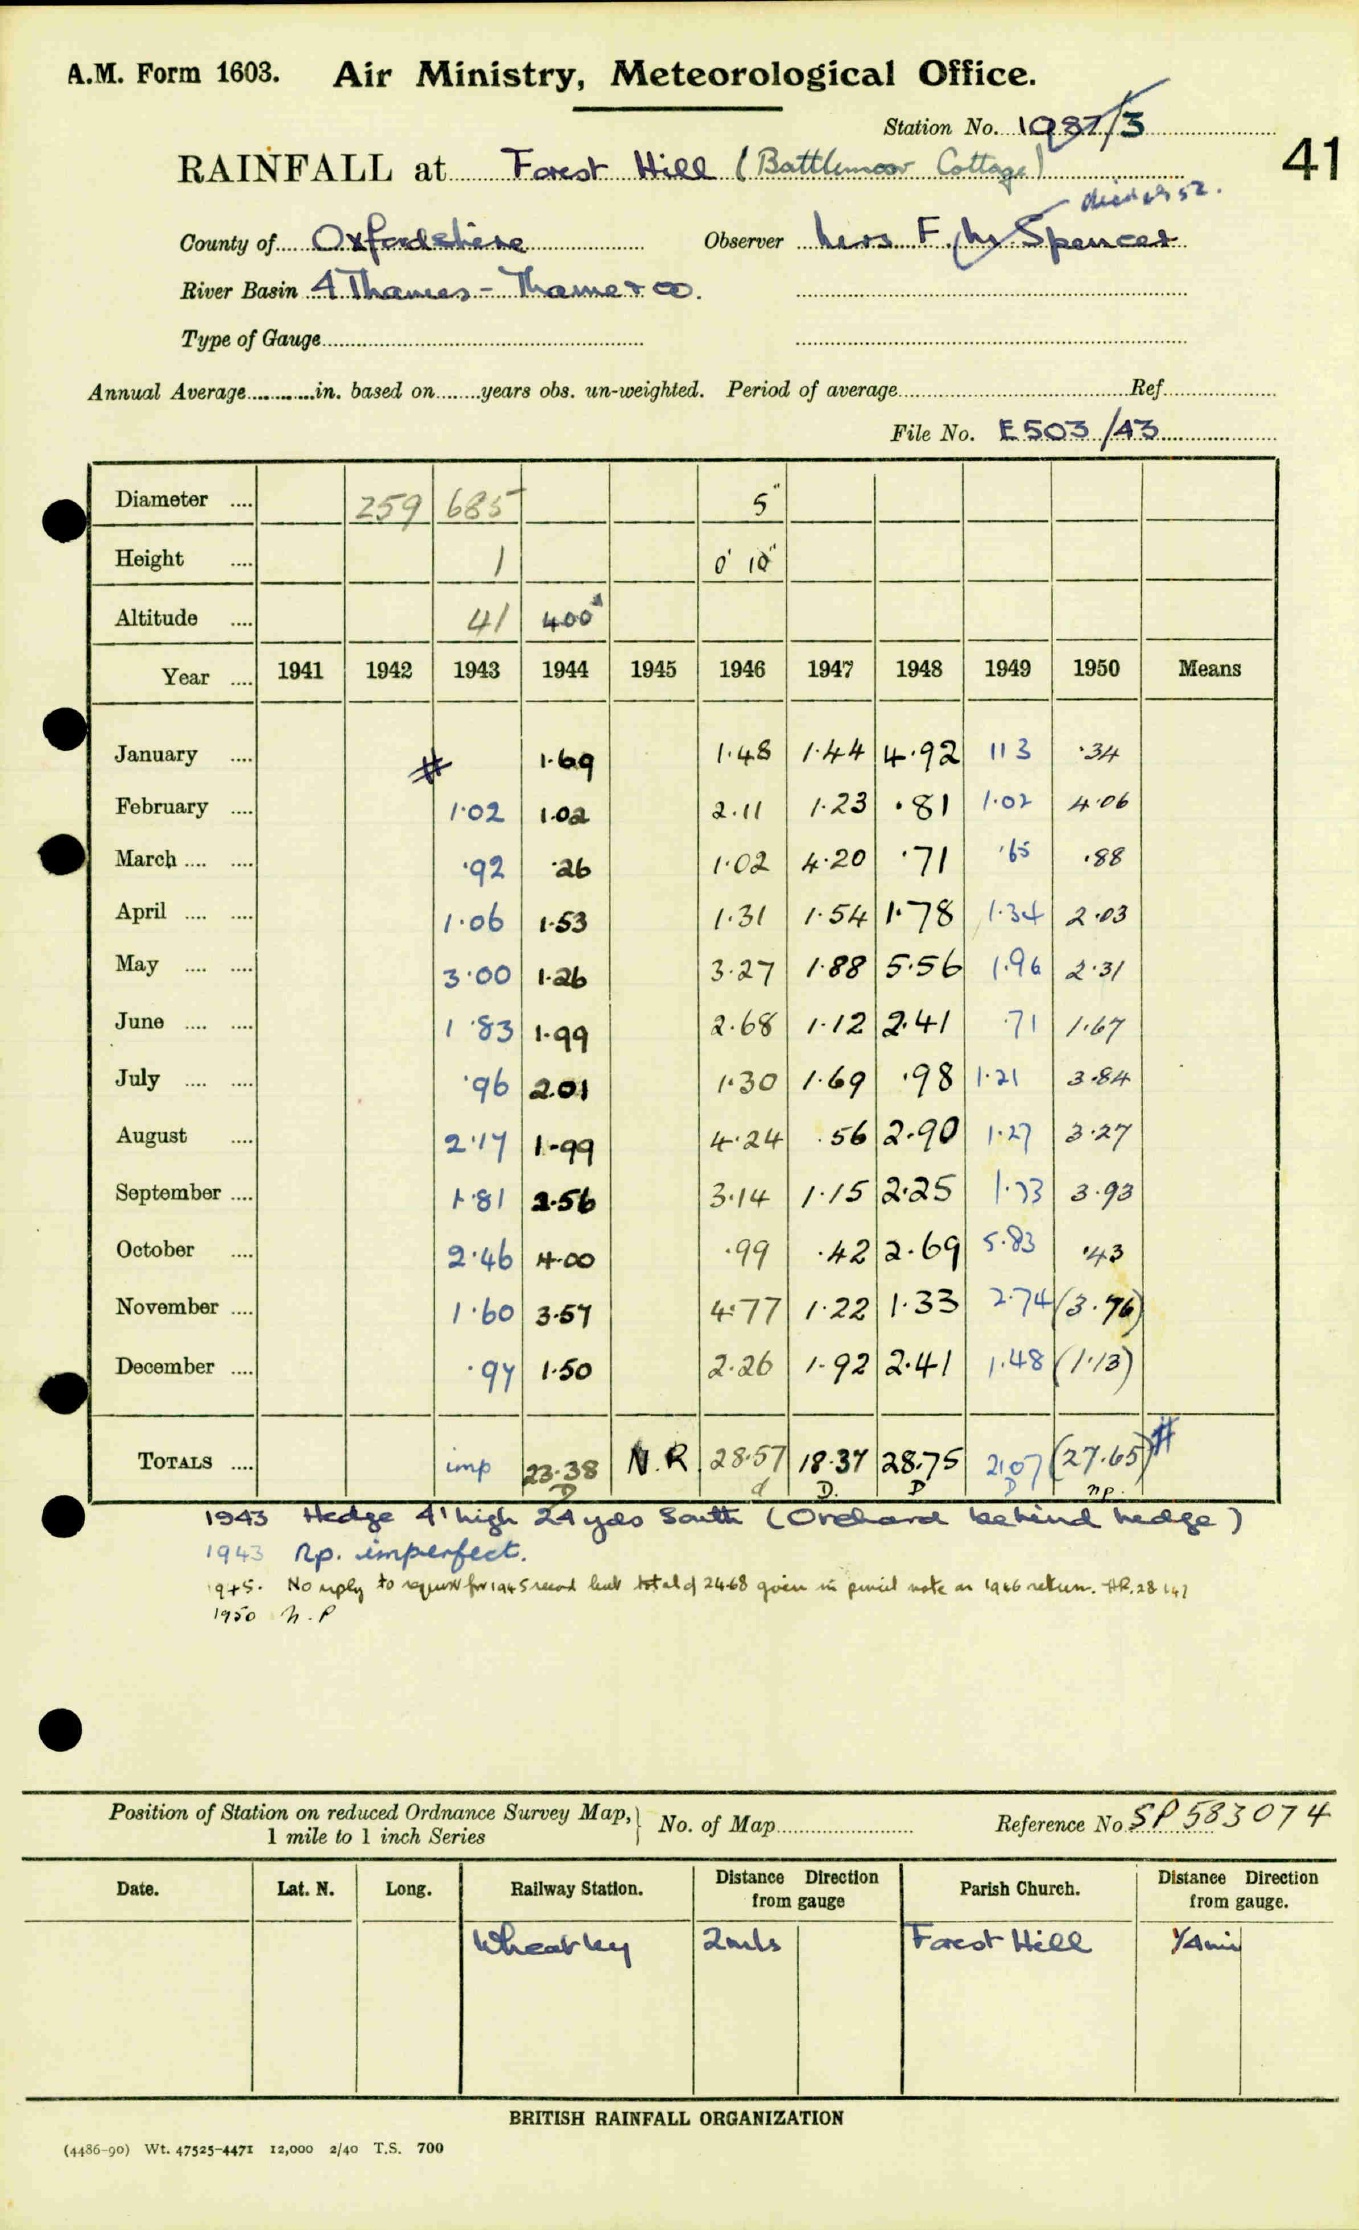 A.M. Form 1603. Air Ministry, Meteorological Office.
Station No. 1987/3
41
RAINFALL at Forest Hill (Battlemoor Cottage)
County of Oxfordshire Observer Mrs F. M. Spencer
River Basin 4 Thames - Thame & co.
Type of Gauge
Annual Average in. based on years obs. un-weighted. Period of average Ref
File No. E503/43
Diameter 259 685 5"
Height 1 0' 10"
Altitude 41 400
Year 1941 1942 1943 1944 1945 1946 1947 1948 1949 1950 Means
January # 1.69 1.48 1.44 4.92 113 .34
February 1.02 1.02 2.11 1.23 .81 1.02 4.06
March .92 .26 1.02 4.20 .71 .65 .88
April 1.06 1.53 1.31 1.54 1.78 1.34 2.03
May 3.00 1.26 3.27 1.88 5.56 1.96 2.31
June 1.83 1.99 2.68 1.12 2.41 .71 1.67
July .96 2.01 1.30 1.69 .98 1.21 3.84
August 2.17 1.99 4.24 .56 2.90 1.27 3.27
September 1.81 2.56 3.14 1.15 2.25 1.73 3.93
October 2.46 4.00 .99 .42 2.69 5.83 .43
November 1.60 3.57 4.77 1.22 1.33 2.74 (3.76)
December .97 1.50 2.26 1.92 2.41 1.48 (1.13)
TOTALS imp 23.38 N.R. 28.57 18.37 28.75 21.07 (27.65) #
D d D. D D np.
1943 Hedge 4' high 24 yds South (Orchard behind hedge)
1943 Np. imperfect.
1945. No reply to request for 1945 record but total of 24.68 given in pencil note on 1946 return.
1950 N.P
Position of Station on reduced Ordnance Survey Map, 1 mile to 1 inch Series
No. of Map Reference No SP 583074
Date. Lat. N. Long. Railway Station. Distance from gauge Direction Parish Church. Distance from gauge. Direction
Wheatley 2mls Forest Hill 1/4 mi
BRITISH RAINFALL ORGANIZATION
(4486-90) Wt. 47525-4471 12,000 2/40 T.S. 700